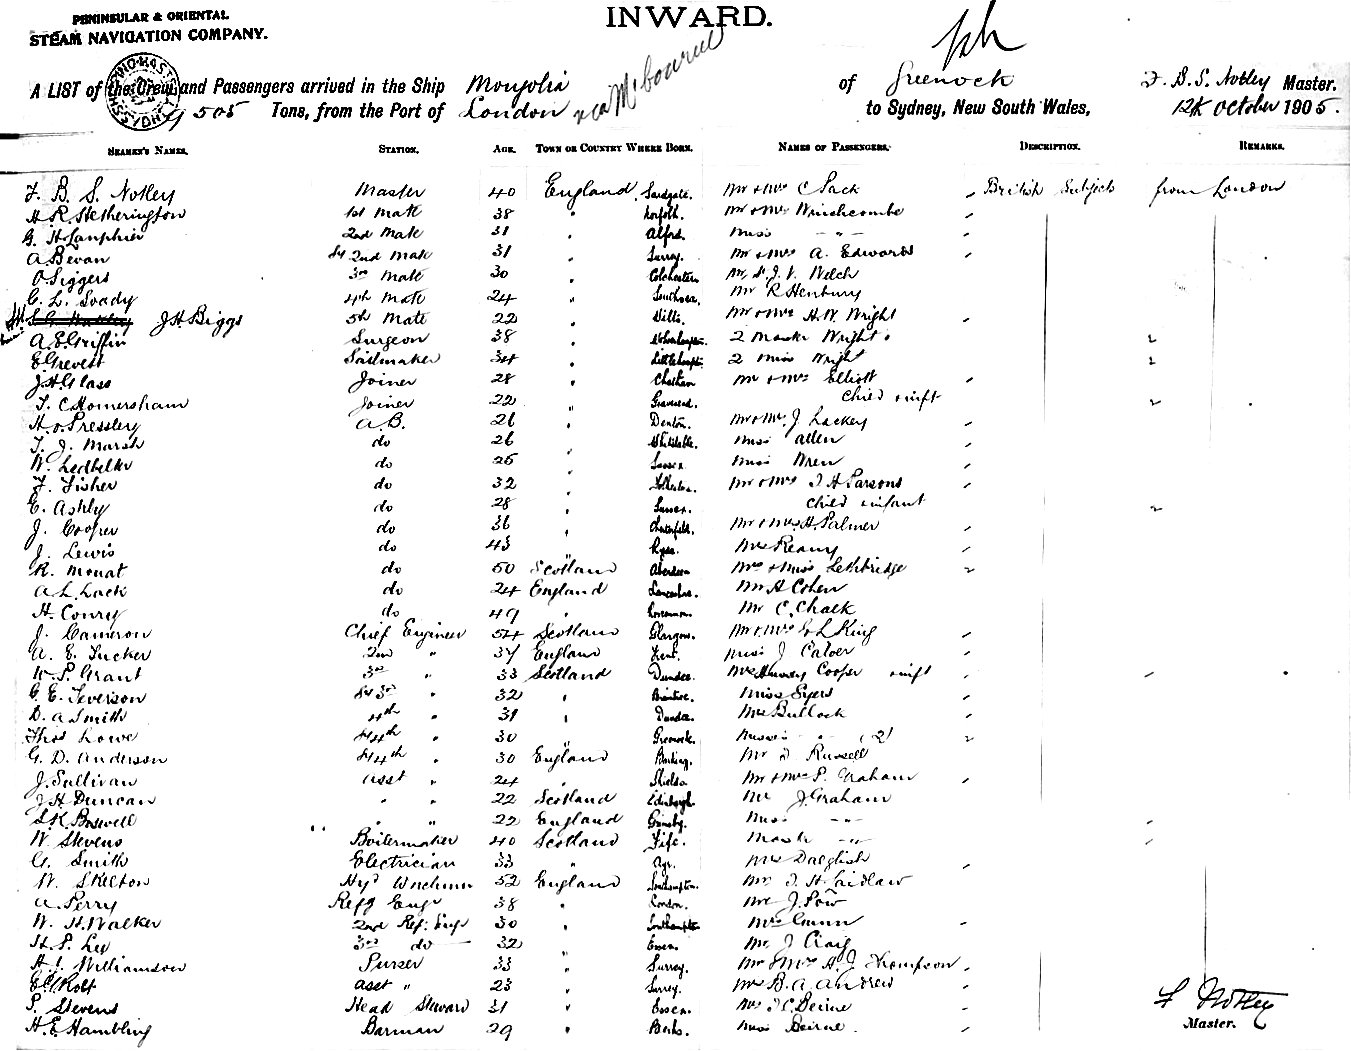 PENINSULAR & ORIENTAL
STEAM NAVIGATION COMPANY.
INWARD.
A LIST of the Crew and Passengers arrived in the Ship Mongolia of Greenock F. B. S. Notley Master.
9505 Tons, from the Port of London via M'bourne to Sydney, New South Wales, 12th October 1905.
SEAMEN'S NAMES. STATION. AGE. TOWN OR COUNTRY WHERE BORN. NAMES OF PASSENGERS. DESCRIPTION. REMARKS.
F. B. S. Notley Master 40 England Sandgate. Mr & Mrs C Pack British Subjects from London
H. R. Hetherington 1st Mate 38 " Norfolk. Mr & Mrs Winchcombe
G. H. Lanphier 2nd Mate 31 " Alford. Miss -"-
A Bevan 2nd Mate 31 " Surrey. Mr & Mrs A. Edwards
O Siggers 3rd Mate 30 " Colchester. J. V. Welch
C. L. Soady 4th Mate 24 " Southsea. Mr R Henbury
J. H. Biggs 5th Mate 22 " Wilts. Mr & Mrs H. W. Wright
A. E. Griffin Surgeon 38 " Wolverhampton. 2 Master Wrights 2
E Grevett Sailmaker 34 " Littlehampton. 2 Miss Wright 2
J. H. Glass Joiner 28 " Chatham Mr & Mrs Elliott
T. C Homersham Joiner 22 " Gravesend. Child & inft 2
H. Pressley A.B. 26 " Denton. Mr & Mrs J. Lackey
T. J. Marsh do 26 " Whitstable. Miss Allen
W. Ledbetter do 25 " Sussex. Miss Wren
F. Fisher do 32 " Folkestone. Mr & Mrs T A Parsons
E. Ashby do 28 " Sussex. Child & infant 2
J. Cooper do 36 " Mr & Mrs H. Palmer
J. Lewis do 43 " Ryde. Mrs Reany
R. Mouat do 50 Scotland Aberdeen Mrs & Miss Lethbridge 2
A. L. Lack do 24 England Lancashire. Mr A Cohen
H. Conry do 49 " Roscommon. Mr C. Chalk
J. Cameron Chief Engineer 54 Scotland Glasgow. Mr & Mrs L King
A. E. Tucker 2nd " 37 England Kent. Miss J Calver
W. P. Grant 3rd " 33 Scotland Dundee. Mrs Harvey Cooper inft
C. E. Teverson 3rd " 32 " Braintree. Miss Syers
D. A Smith 4th " 31 " Dundee. Mrs Bullock
Thos Lowe 4th " 30 " Greenock. Misses -"- (2) 2
G. D. Anderson 4th " 30 England Barking. Mr T Russell
J. Sullivan asst " 24 " Shields. Mr & Mrs P. Graham
J. H Duncan " " 22 Scotland Edinburgh. Mr J. Graham
S. K. Boswell " " 22 England Grimsby. Miss -"-
W Stevens Boilermaker 40 Scotland Fife. Master -"-
G. Smith Electrician 33 " Ayr. Mrs Dalglish
W. Skelton Hyd Winchman 52 England Southampton. Mr T. H. Laidlaw
A. Perry Refg Engr 38 " London. Mr J. Pow
W. H. Walker 2nd Ref. Engr 30 " Southampton Mrs Gunn
H. P. Ley 3rd do 32 " Essex. Mr J Craig
H. J. Williamson Purser 33 " Surrey. Mr & Mrs A. J. Thompson
E. C. Holt asst " 23 " Surrey. Mrs B. A. Andrew
P. Stevens Head Steward 31 " Essex. Mrs J. C. Beirne
H. E. Hambling Barman 29 " Berks. Miss Beirne.
F Notley
Master.